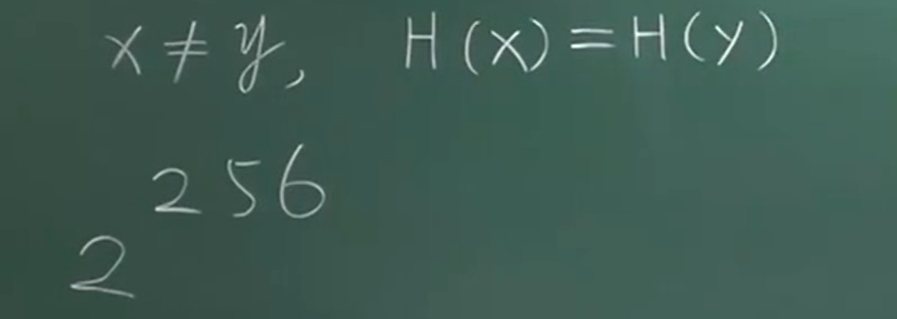 x ≠ y, H(x) = H(y)
2^256